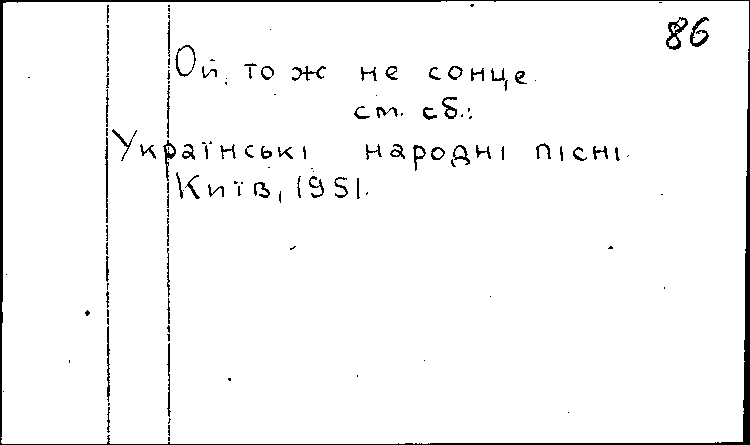 86
Ой, то ж не сонце
см. сб.:
Українські народні пісні.
Київ, 1951.